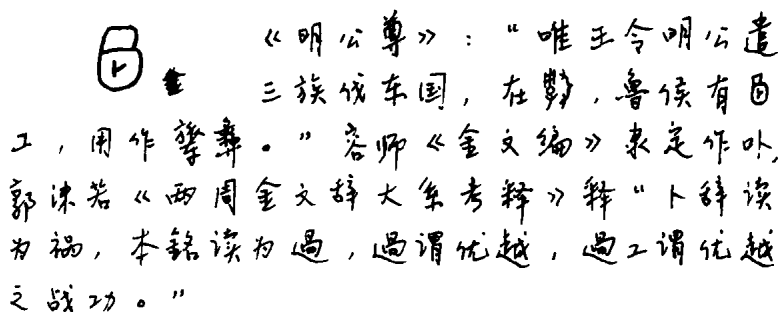 金 《明公尊》："唯王令明公遣
三族伐东国，在，鲁侯有
工，用作彝。"容师《金文编》隶定作卟，
郭沫若《两周金文辞大系考释》释"卜辞读
为祸，本铭读为过，过谓优越，过工谓优越
之战功。"